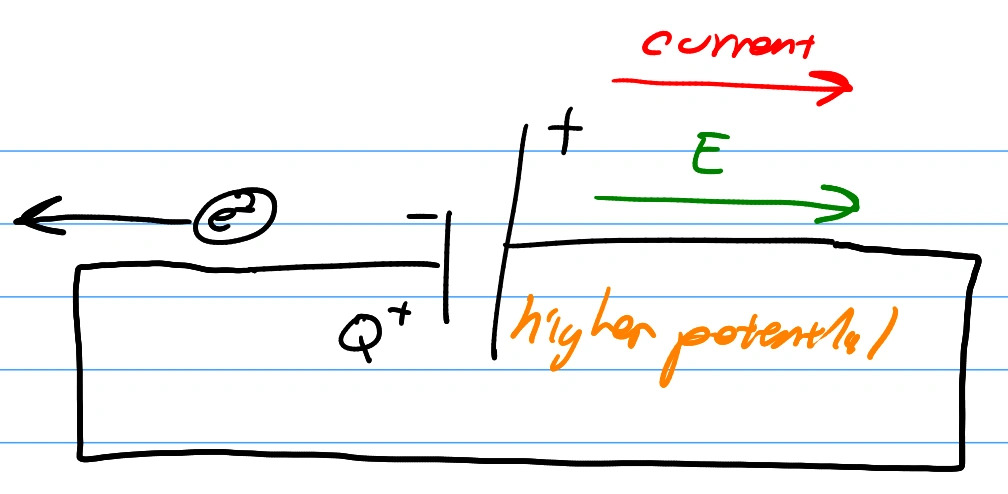 current
+
E
e⁻
−
Q⁺
higher potential